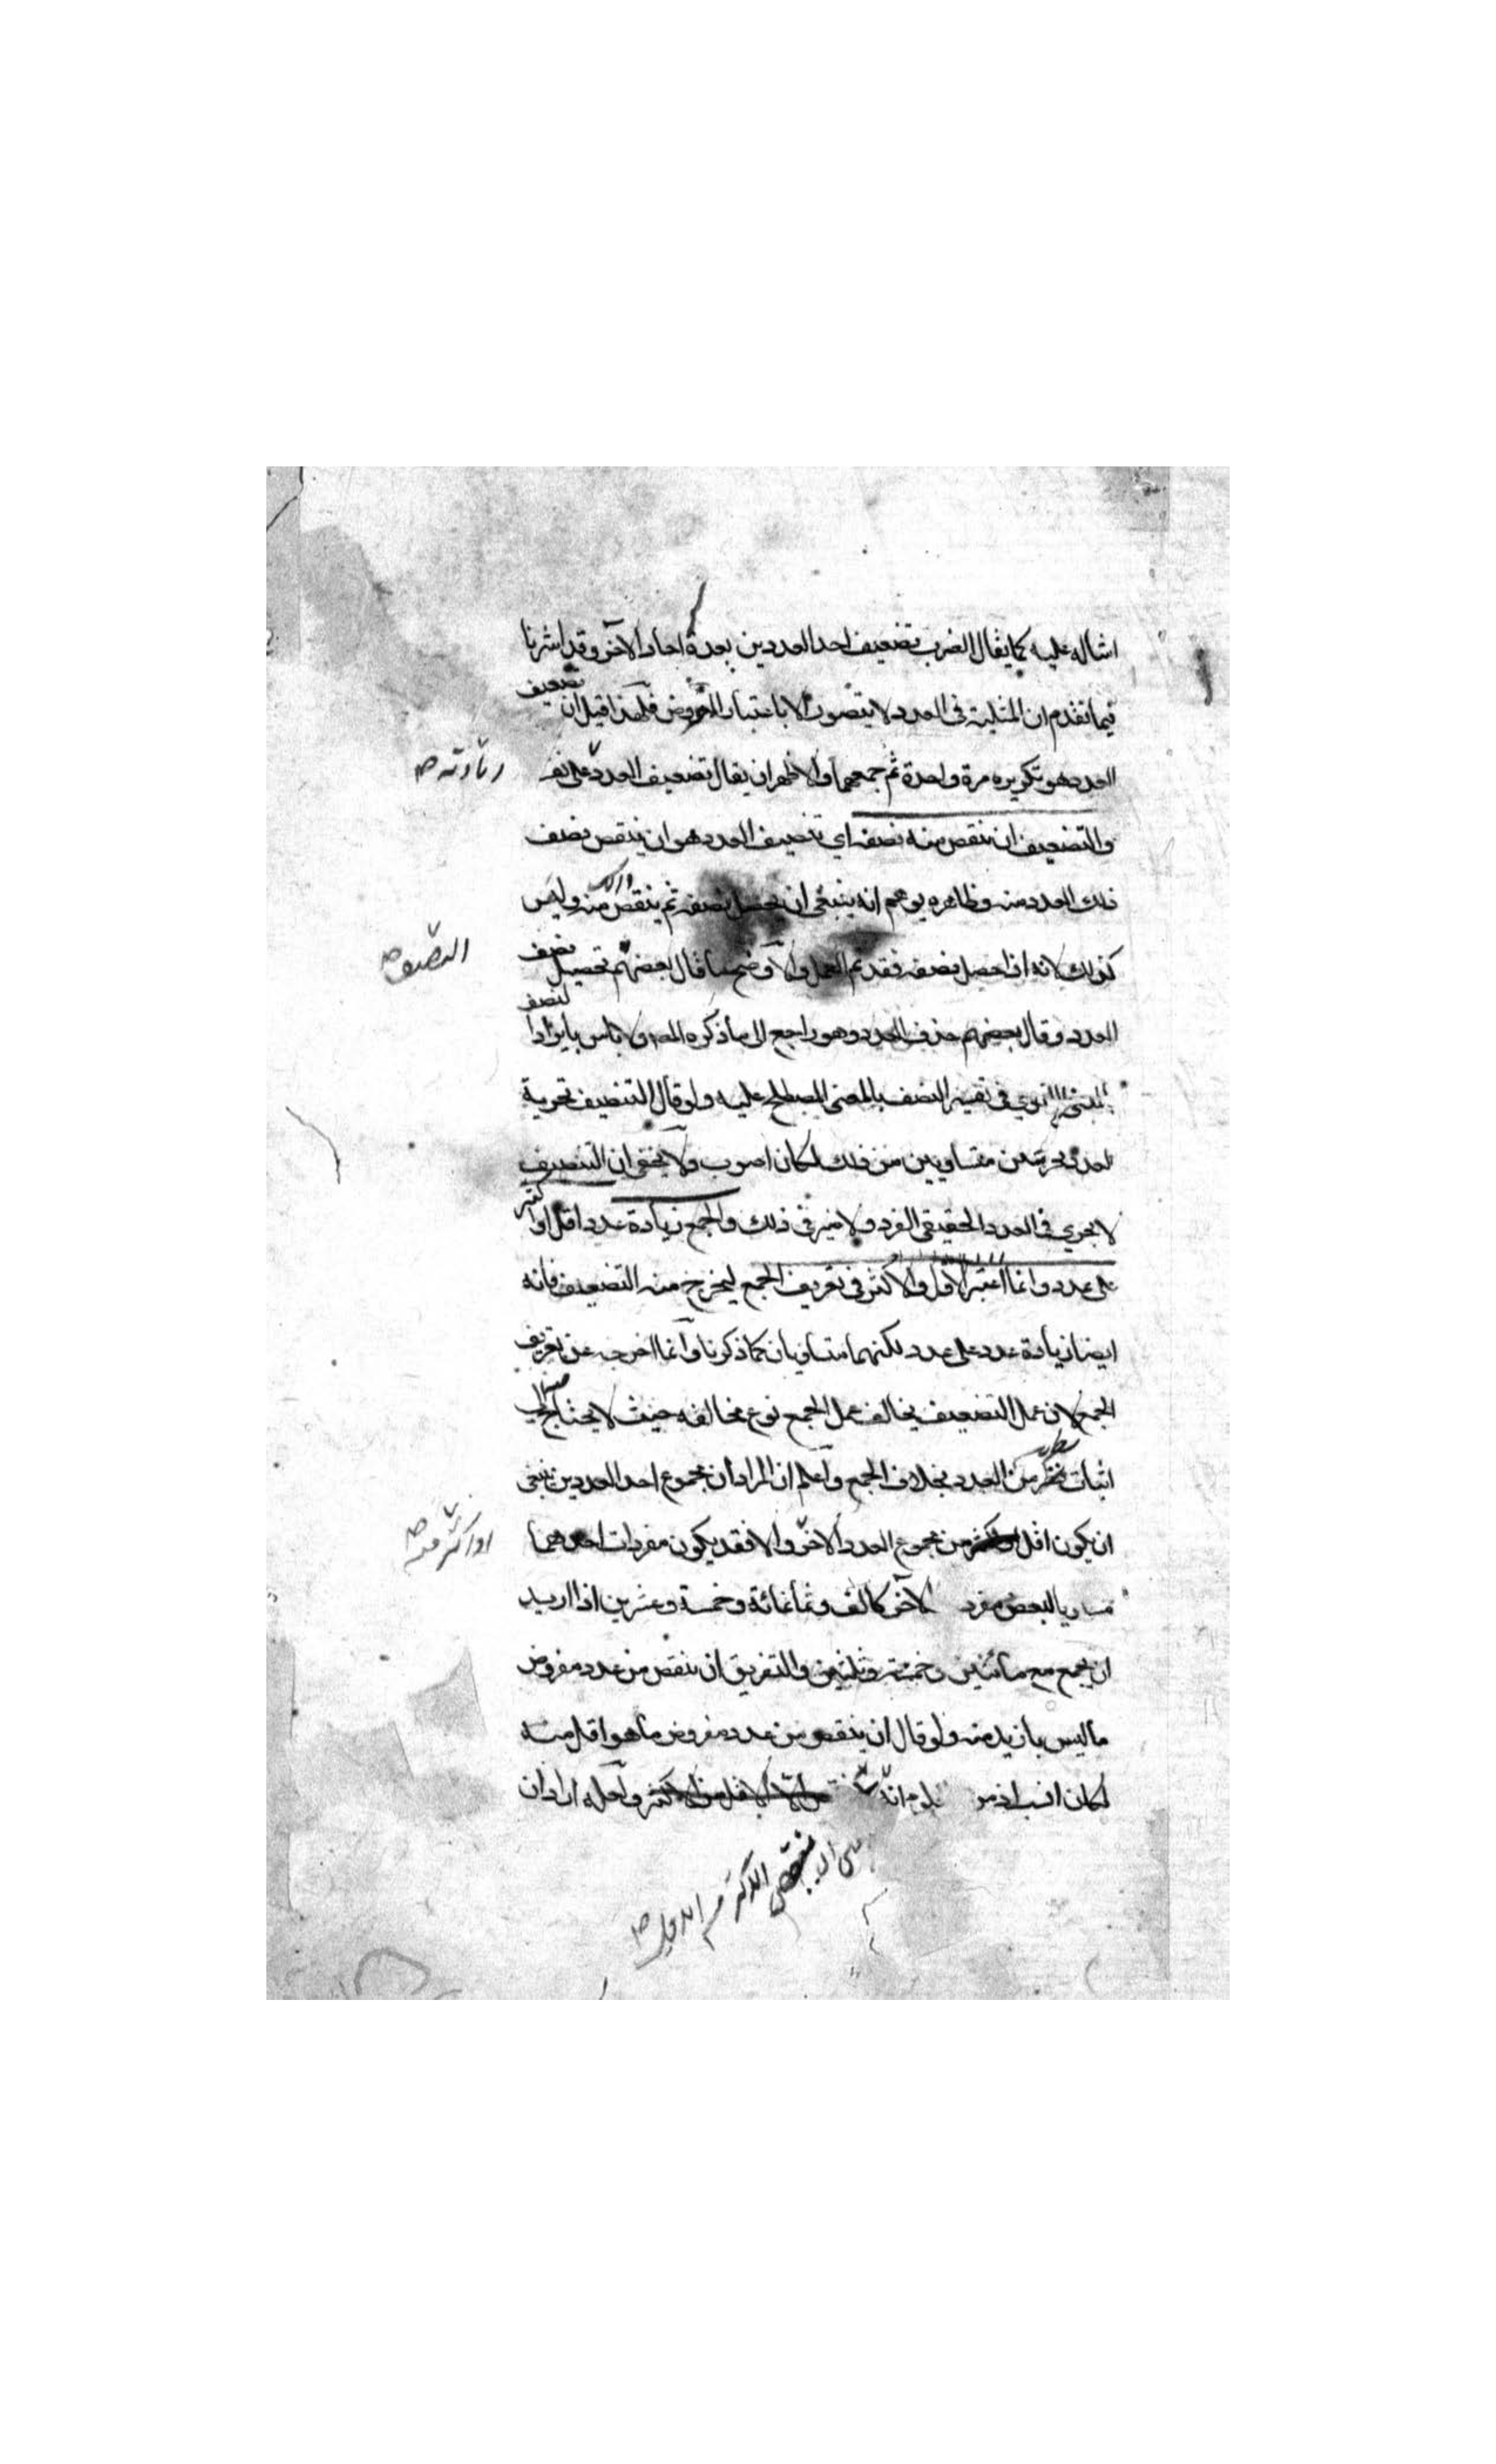 امثاله عليه كما يقال الضرب تضعيف احد العددين بعدة احاد الآخر وقد اشرنا
فيما تقدم ان المثلية في العدد لا يتصور الا باعتبار المعروض فلهذا قيل ان تضعيف
العدد هو تكريره مرة واحدة ثم جمعهما والاظهر ان يقال تضعيف العدد على نفسه
زيادته صح
والتضعيف ان ينقص منه نصفه اي تنصيف العدد هو ان ينقص نصف
ذلك العدد منه وظاهره يوهم انه ينبغي ان يحصل نصفه ثم ينقص منه وليس
كذلك لانه اذا حصل نصفه فقد تم العمل والاوضح ما قال بعضهم تحصيل نصف
التنصيف صح
العدد وقال بعضهم حذف العدد وهو راجع الى ما ذكره المص ولا باس بايراد لنصف
المعنى اللغوي في تفسير النصف بالمعنى المصطلح عليه ولو قال التنصيف تجزية
العدد بجزئين متساويين من ذلك لكان اصوب ولا يخفى ان التنصيف
لا يجري في العدد الحقيقي الفرد ولا ضير في ذلك والجمع زيادة عدد اقل او اكثر
على عدد وانما اعتبر الاقل والاكثر في تعريف الجمع ليخرج منه التضعيف فانه
ايضا زيادة عدد على عدد لكنهما متساويان كما ذكرنا وانما اخرجه عن تعريف
الجمع لان عمل التضعيف يخالف عمل الجمع نوع مخالفة حيث لا يحتاج فيه الى
اثبات سطرين العدد بخلاف الجمع واعلم ان المراد ان مجموع احد العددين ينبغي
ان يكون اقل من مجموع العدد الاخر والا فقد يكون مفردات احدهما
او اكثر منه صح
مساويا لبعض مفرد الاخر كالف وثمانمائة وخمسة وعشرين اذا اريد
ان يجمع مع مائتين وخمسة وثلثين والتفريق ان ينقص من عدد مفروض
ما ليس بازيد منه ولو قال ان ينقص من عدد مفروض ما هو اقل منه
لكان انسب اذ من المعلوم انه الاقل من الاكثر ولعله اراد ان
ان ينقص الاكثر من الاقل صح